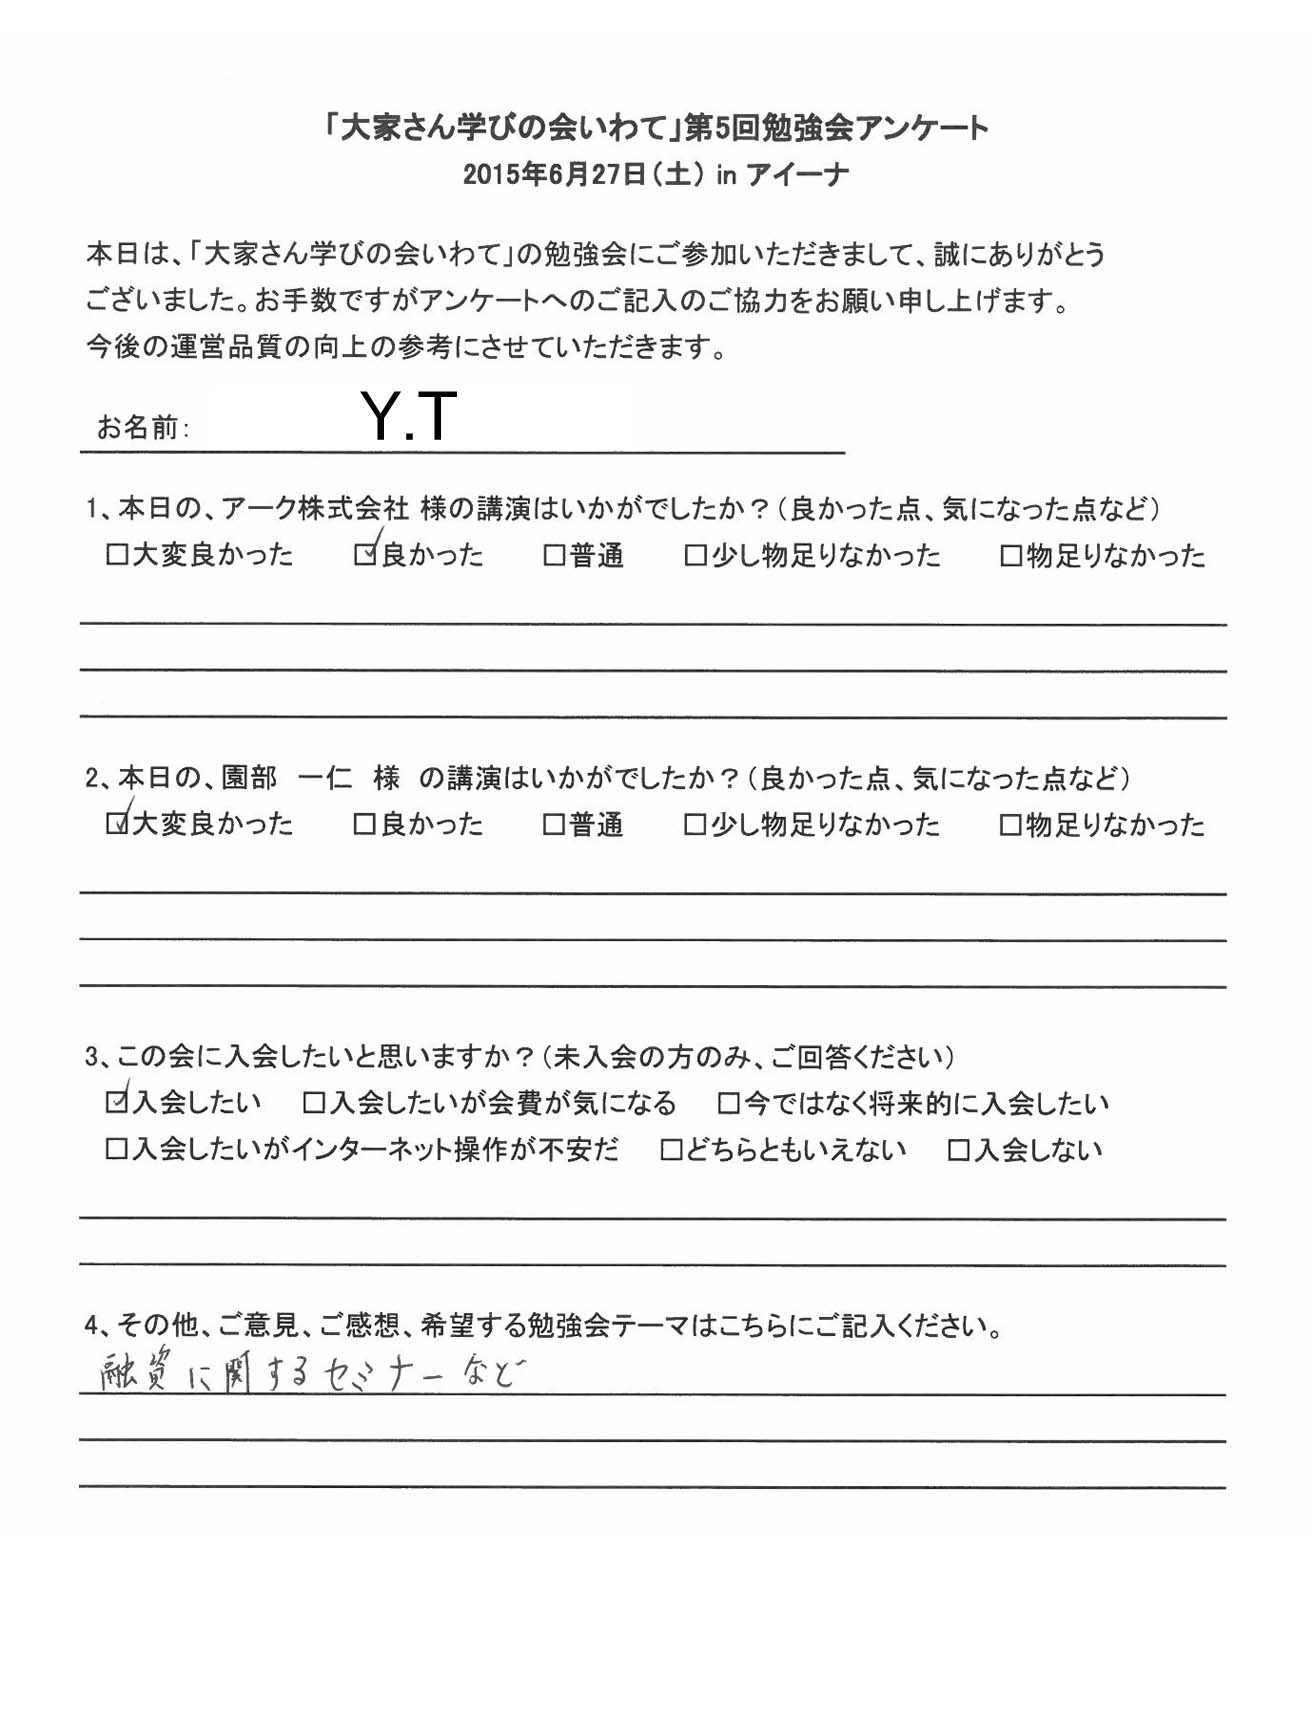 「大家さん学びの会いわて」第5回勉強会アンケート
2015年6月27日（土） in アイーナ
本日は、「大家さん学びの会いわて」の勉強会にご参加いただきまして、誠にありがとう
ございました。お手数ですがアンケートへのご記入のご協力をお願い申し上げます。
今後の運営品質の向上の参考にさせていただきます。
お名前： Y.T
1、本日の、アーク株式会社 様の講演はいかがでしたか？（良かった点、気になった点など）
□大変良かった ☑良かった □普通 □少し物足りなかった □物足りなかった
2、本日の、園部 一仁 様 の講演はいかがでしたか？（良かった点、気になった点など）
☑大変良かった □良かった □普通 □少し物足りなかった □物足りなかった
3、この会に入会したいと思いますか？（未入会の方のみ、ご回答ください）
☑入会したい □入会したいが会費が気になる □今ではなく将来的に入会したい
□入会したいがインターネット操作が不安だ □どちらともいえない □入会しない
4、その他、ご意見、ご感想、希望する勉強会テーマはこちらにご記入ください。
融資に関するセミナーなど